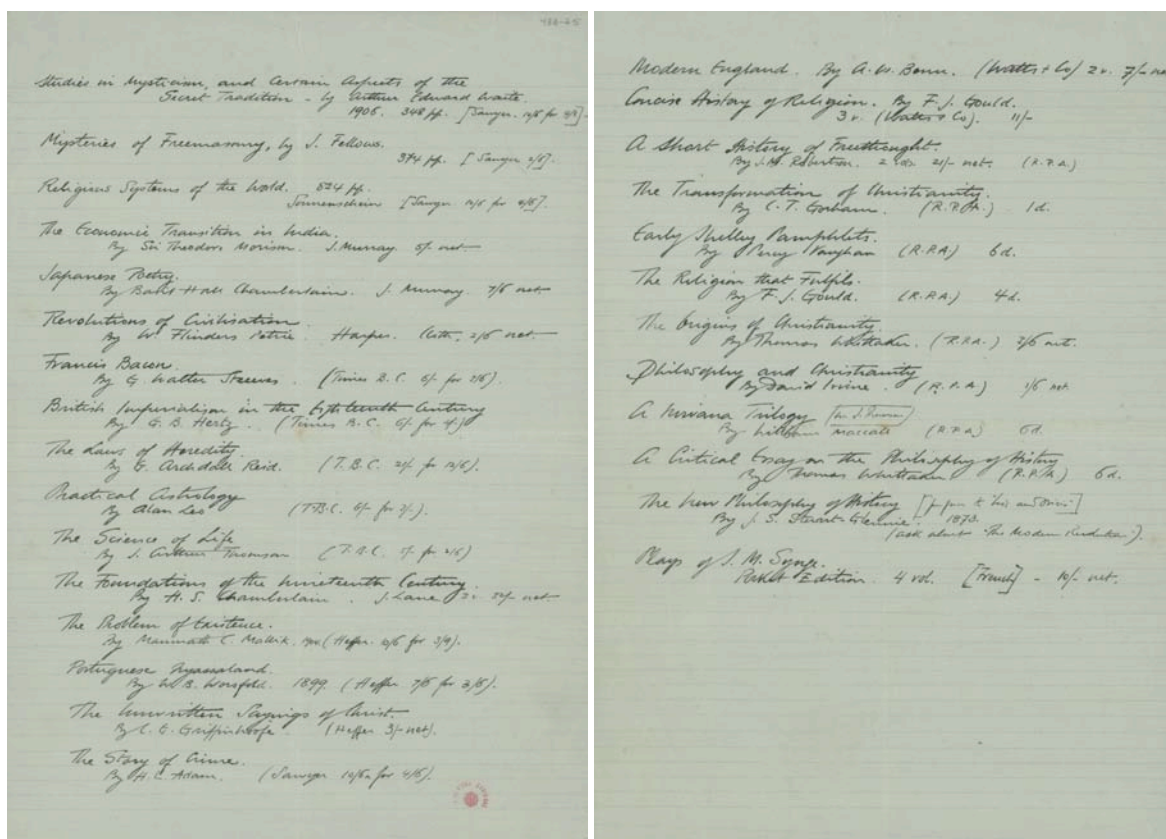 488-25
Studies in Mysticism, and Certain Aspects of the
Secret Tradition - by Arthur Edward Waite.
1906. 348 pp. [Sawyer. 10/6 for
Mysteries of Freemasonry, by J. Fellows.
374 pp. [Sawyer 2/6].
Religious Systems of the World. 824 pp.
Sonnenschein [Sawyer 10/6 for 4/6].
The Economic Transition in India.
By Sir Theodore Morison. J. Murray 5/- net.
Japanese Poetry.
By Basil Hall Chamberlain. J. Murray. 7/6 net.
Revolutions of Civilisation.
By W. Flinders Petrie. Harper. Cloth, 2/6 net.
Francis Bacon.
By G. Walter Steeves. (Times B.C. 6/- for 2/6).
British Imperialism in the Eighteenth Century
By G. B. Hertz. (Times B.C. 6/- for
The Laws of Heredity.
By G. Archdall Reid. (T.B.C. 21/- for 12/6).
Practical Astrology
By Alan Leo (T.B.C.
The Science of Life
By J. Arthur Thomson (T.B.C.
The Foundations of the Nineteenth Century.
By H. S. Chamberlain. J. Lane net.
The Problem of Existence.
By Manmath C. Mallik. (Heffer. 10/6 for 3/9).
Portuguese Nyassaland.
By W. B. Worsfold. 1899. (Heffer 7/6 for 3/6).
The Unwritten Sayings of Christ.
By C. G. Griffinhoofe. (Heffer 3/- net).
The Story of Crime.
By H. L. Adam. (Sawyer 10/6 for 4/6).
Modern England. By A. W. Benn. (Watts & Co) 2 v. 7/- net
Concise History of Religion. By F. J. Gould.
3 v. (Watts & Co). 11/-
A Short History of Freethought.
By J. M. Robertson. 2 vols. 21/- net. (R.P.A.)
The Transformation of Christianity.
By C. T. Gorham. (R.P.A.) 1d.
Early Shelley Pamphlets.
By Percy Vaughan (R.P.A.) 6d.
The Religion that Fulfils.
By F. J. Gould. (R.P.A.) 4d.
The Origins of Christianity.
By Thomas Whittaker. (R.P.A.) 3/6 net.
Philosophy and Christianity
By David Irvine. (R.P.A.) 1/6 net
A Nirvana Trilogy
By William Maccall (R.P.A.) 6d.
A Critical Essay on the Philosophy of History
By Thomas Whittaker (R.P.A.) 6d.
The New Philosophy of History
By J. S. Stuart-Glennie. 1873.
(ask about "The Modern Revolution").
Plays of J. M. Synge.
Pocket Edition. 4 vol. [French] - 10/- net.